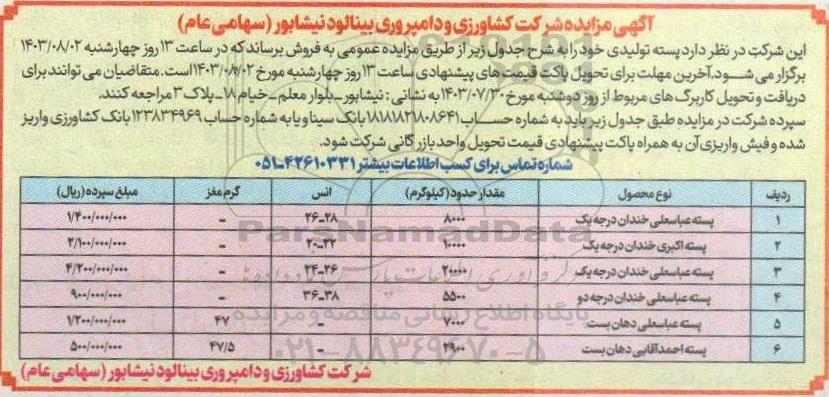 آگهی مزایده شرکت کشاورزی و دامپروری بینالود نیشابور (سهامی عام)
این شرکت در نظر دارد پسته تولیدی خود را به شرح جدول زیر از طریق مزایده عمومی به فروش برساند که در ساعت ۱۳ روز چهارشنبه ۱۴۰۳/۰۸/۰۲
برگزار می شود. آخرین مهلت برای تحویل پاکت قیمت های پیشنهادی ساعت ۱۳ روز چهارشنبه مورخ ۱۴۰۳/۰۸/۰۲ است. متقاضیان می توانند برای
دریافت و تحویل کاربرگ های مربوط از روز دوشنبه مورخ ۱۴۰۳/۰۷/۳۰ به نشانی : نیشابور ـ بلوار معلم ـ خیام ۱۸ ـ پلاک ۳ مراجعه کنند.
سپرده شرکت در مزایده طبق جدول زیر باید به شماره حساب بانک سینا و یا به شماره حساب ۱۲۳۸۳۴۹۶۹ بانک کشاورزی واریز
شده و فیش واریزی آن به همراه پاکت پیشنهادی قیمت تحویل واحد بازرگانی شرکت شود.
شماره تماس برای کسب اطلاعات بیشتر ۴۲۶۱۰۳۳۱-۰۵۱
ردیف نوع محصول مقدار حدود (کیلوگرم) انس گرم مغز مبلغ سپرده (ریال)
۱ پسته عباسعلی خندان درجه یک ۸۰۰۰ ۲۸-۲۶ - ۱/۴۰۰/۰۰۰/۰۰۰
۲ پسته اکبری خندان درجه یک ۱۰۰۰۰ ۲۲-۲۰ - ۲/۱۰۰/۰۰۰/۰۰۰
۳ پسته عباسعلی خندان درجه یک ۲۰۰۰۰ ۲۶-۲۴ - ۴/۲۰۰/۰۰۰/۰۰۰
۴ پسته عباسعلی خندان درجه دو ۵۵۰۰ ۳۸-۳۶ - ۹۰۰/۰۰۰/۰۰۰
۵ پسته عباسعلی دهان بست ۷۰۰۰ - ۴۷ ۱/۲۰۰/۰۰۰/۰۰۰
۶ پسته احمدآقایی دهان بست ۲۹۰۰ - ۴۷/۵ ۵۰۰/۰۰۰/۰۰۰
شرکت کشاورزی و دامپروری بینالود نیشابور (سهامی عام)
ParsNamadData
پایگاه اطلاع رسانی مناقصه و مزایده
۰۲۱-۸۸۳۴۹۶۷۰-۵